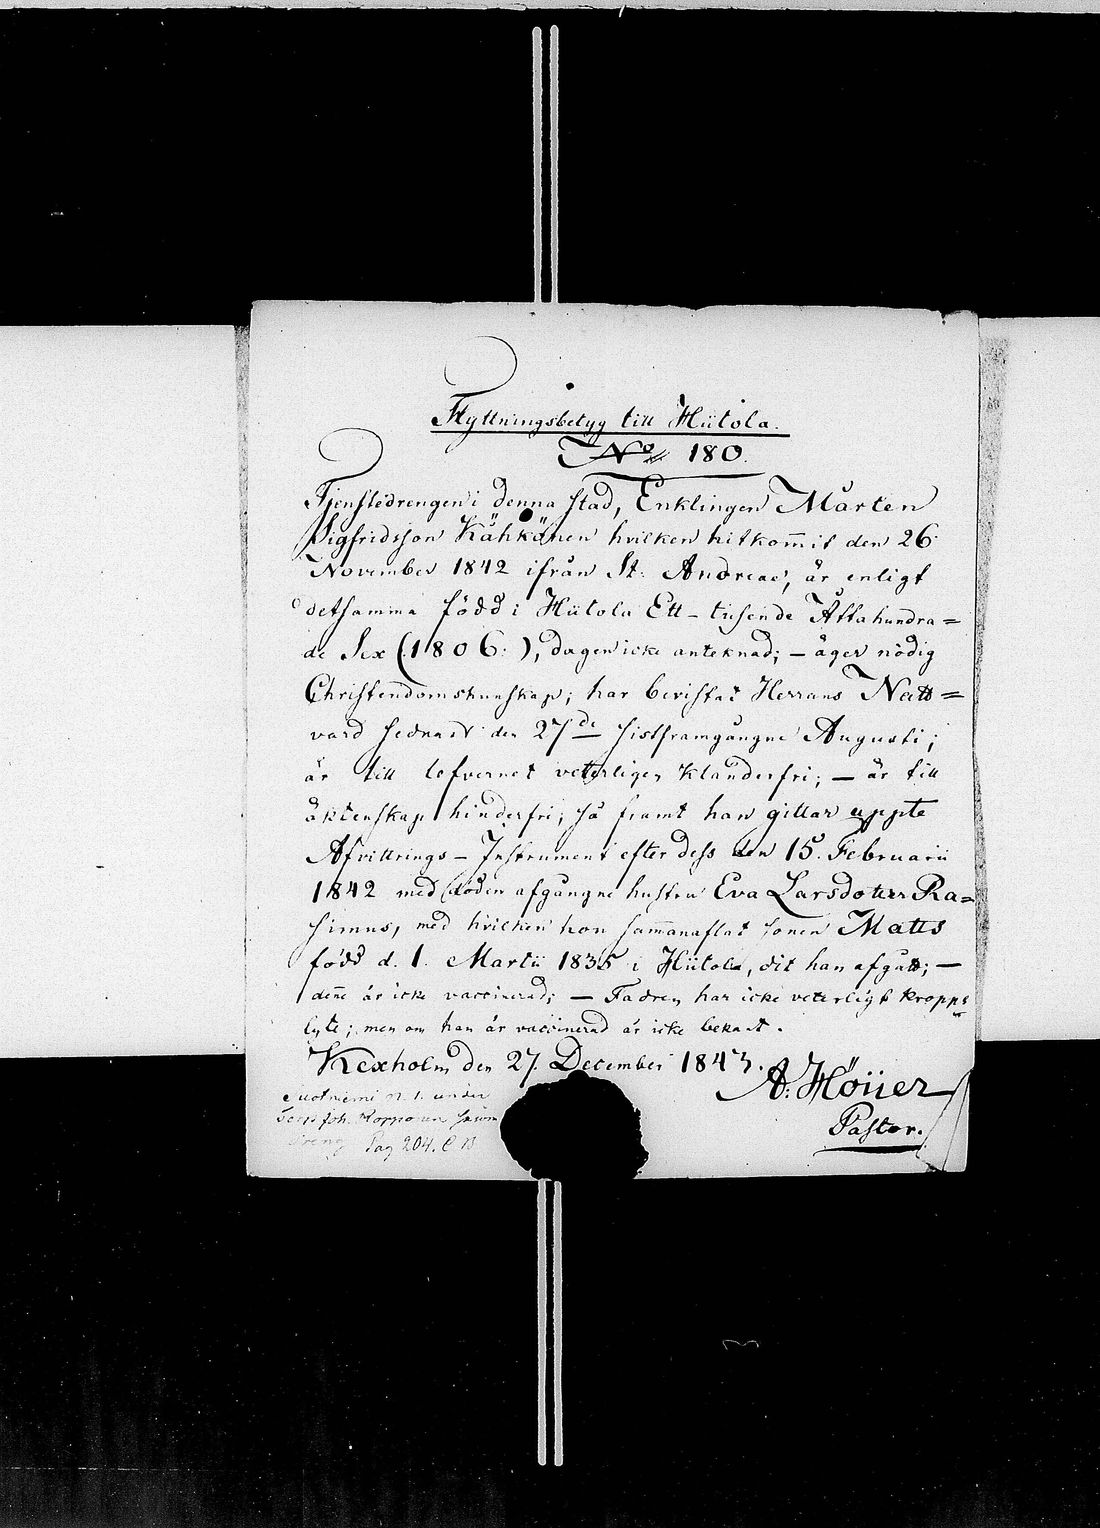 Flyttningsbetyg till Hiitola.
No 180.
Tjenstedrengen i denna stad, Enklingen Mårten
Sigfridsson Kähkönen hvilken hitkom̅it den 26
November 1842 ifrån St. Andreae, är enligt
detsamma född i Hiitola Ett-tusende Åttahundra=
de Sex (1806.), dagen icke anteknad; — äger nödig
Christendomskunskap; har bevistat Herrans Natt=
vard sednast den 27de sistframgångne Augusti;
är till lefvernet veterligen klanderfri; — är till
äktenskap hinderfri, så framt han gittar uppte
Afvittrings-Instrument efter dess den 15. Februarii
1842 med döden afgångne hustru Eva Larsdotter Ra=
simus, med hvilken hon sam̅anaflat sonen Matts
född d. 1. Martii 1835 i Hiitola, dit han afgått; —
den̅e är icke vaccinerad; — Fadren har icke veterligt kropps
lyte; men om han är vaccinerad är icke bekant.
Kexholm den 27. December 1843.
A. Höijer
Pastor.
Suotniemi N. 1. under
Joh. Kopponen såsom
dreng Pag 204.